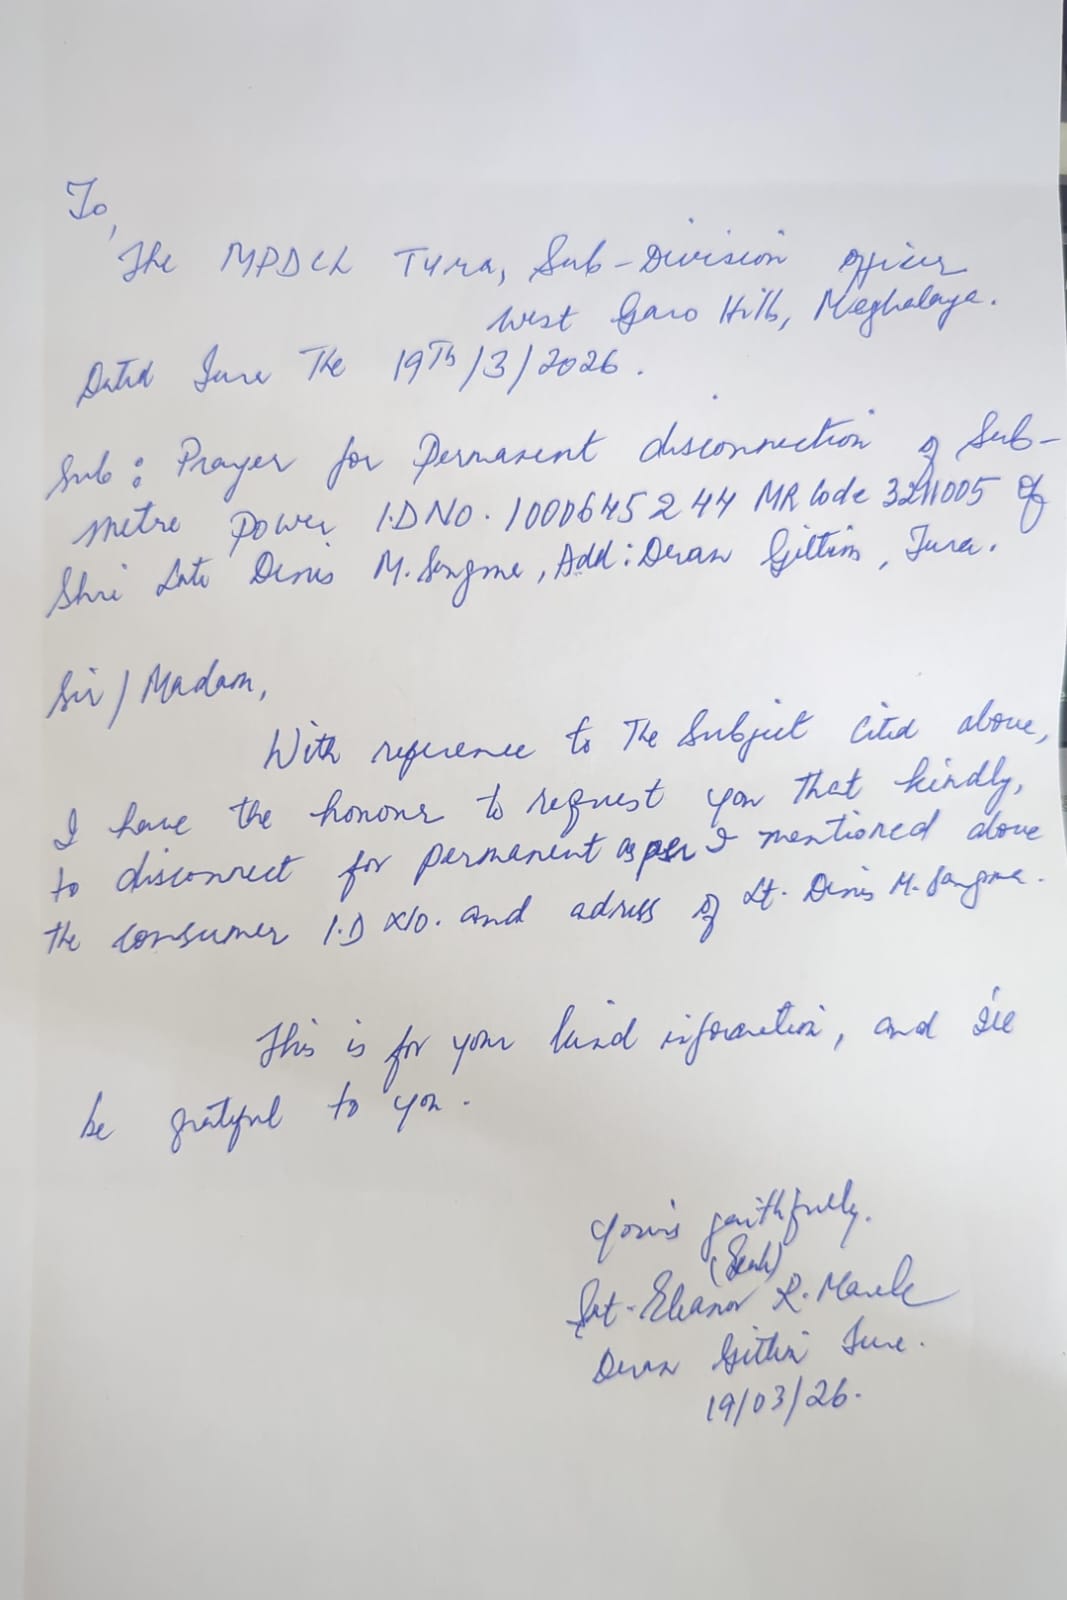 To,
The MPDCL Tura, Sub-Division officer
West Garo Hills, Meghalaya.
Dated Tura The 19Th/3/2026.
Sub: Prayer for Permanent disconnection of Sub-
metre Power I.D NO. 1000645244 MR Code 3211005 of
Shri Late Denis M. Sangma, Add: Deran Gittim, Tura.
Sir/Madam,
With reference to The Subject Cited above,
I have the honour to request you that kindly,
to disconnect for permanent as per I mentioned above
the consumer I.D No. and adress of Lt. Denis M. Sangma.
This is for your kind information, and
be grateful to you.
Yours faithfully.
Smt-Eleanor R. Marak
Deran Gittim Tura.
19/03/26.